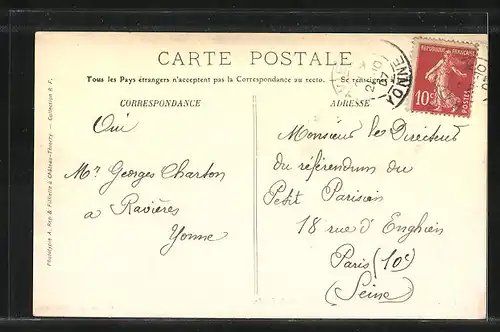 CARTE POSTALE
Tous les Pays étrangers n'acceptent pas la Correspondance au recto.
CORRESPONDANCE
ADRESSE
RÉPUBLIQUE FRANÇAISE
10c
POSTES
YONNE
07
Oui
Mr Georges Charton
a Ravières
Yonne
Monsieur le Directeur
du référendum du
Petit Parisien
18 rue d'Enghien
Paris (10e)
(Seine)
Phototypie A. Rep. & Filliette à Château-Thierry. - Collection R. F.